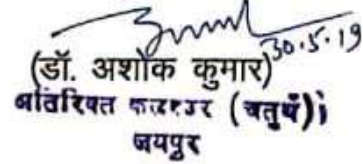 30.5.19
(डॉ. अशोक कुमार)
अतिरिक्त कलक्टर (चतुर्थ)
जयपुर